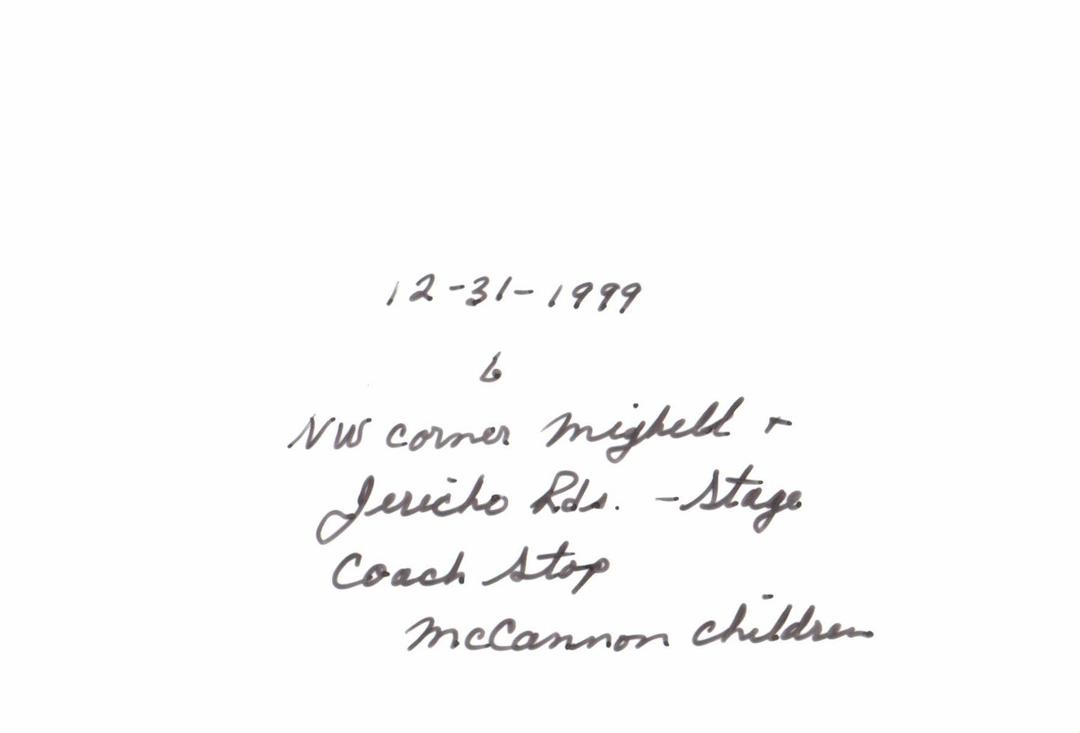 12-31-1999
6
NW corner Mighell +
Jericho Rds. - Stage
Coach Stop
McCannon children